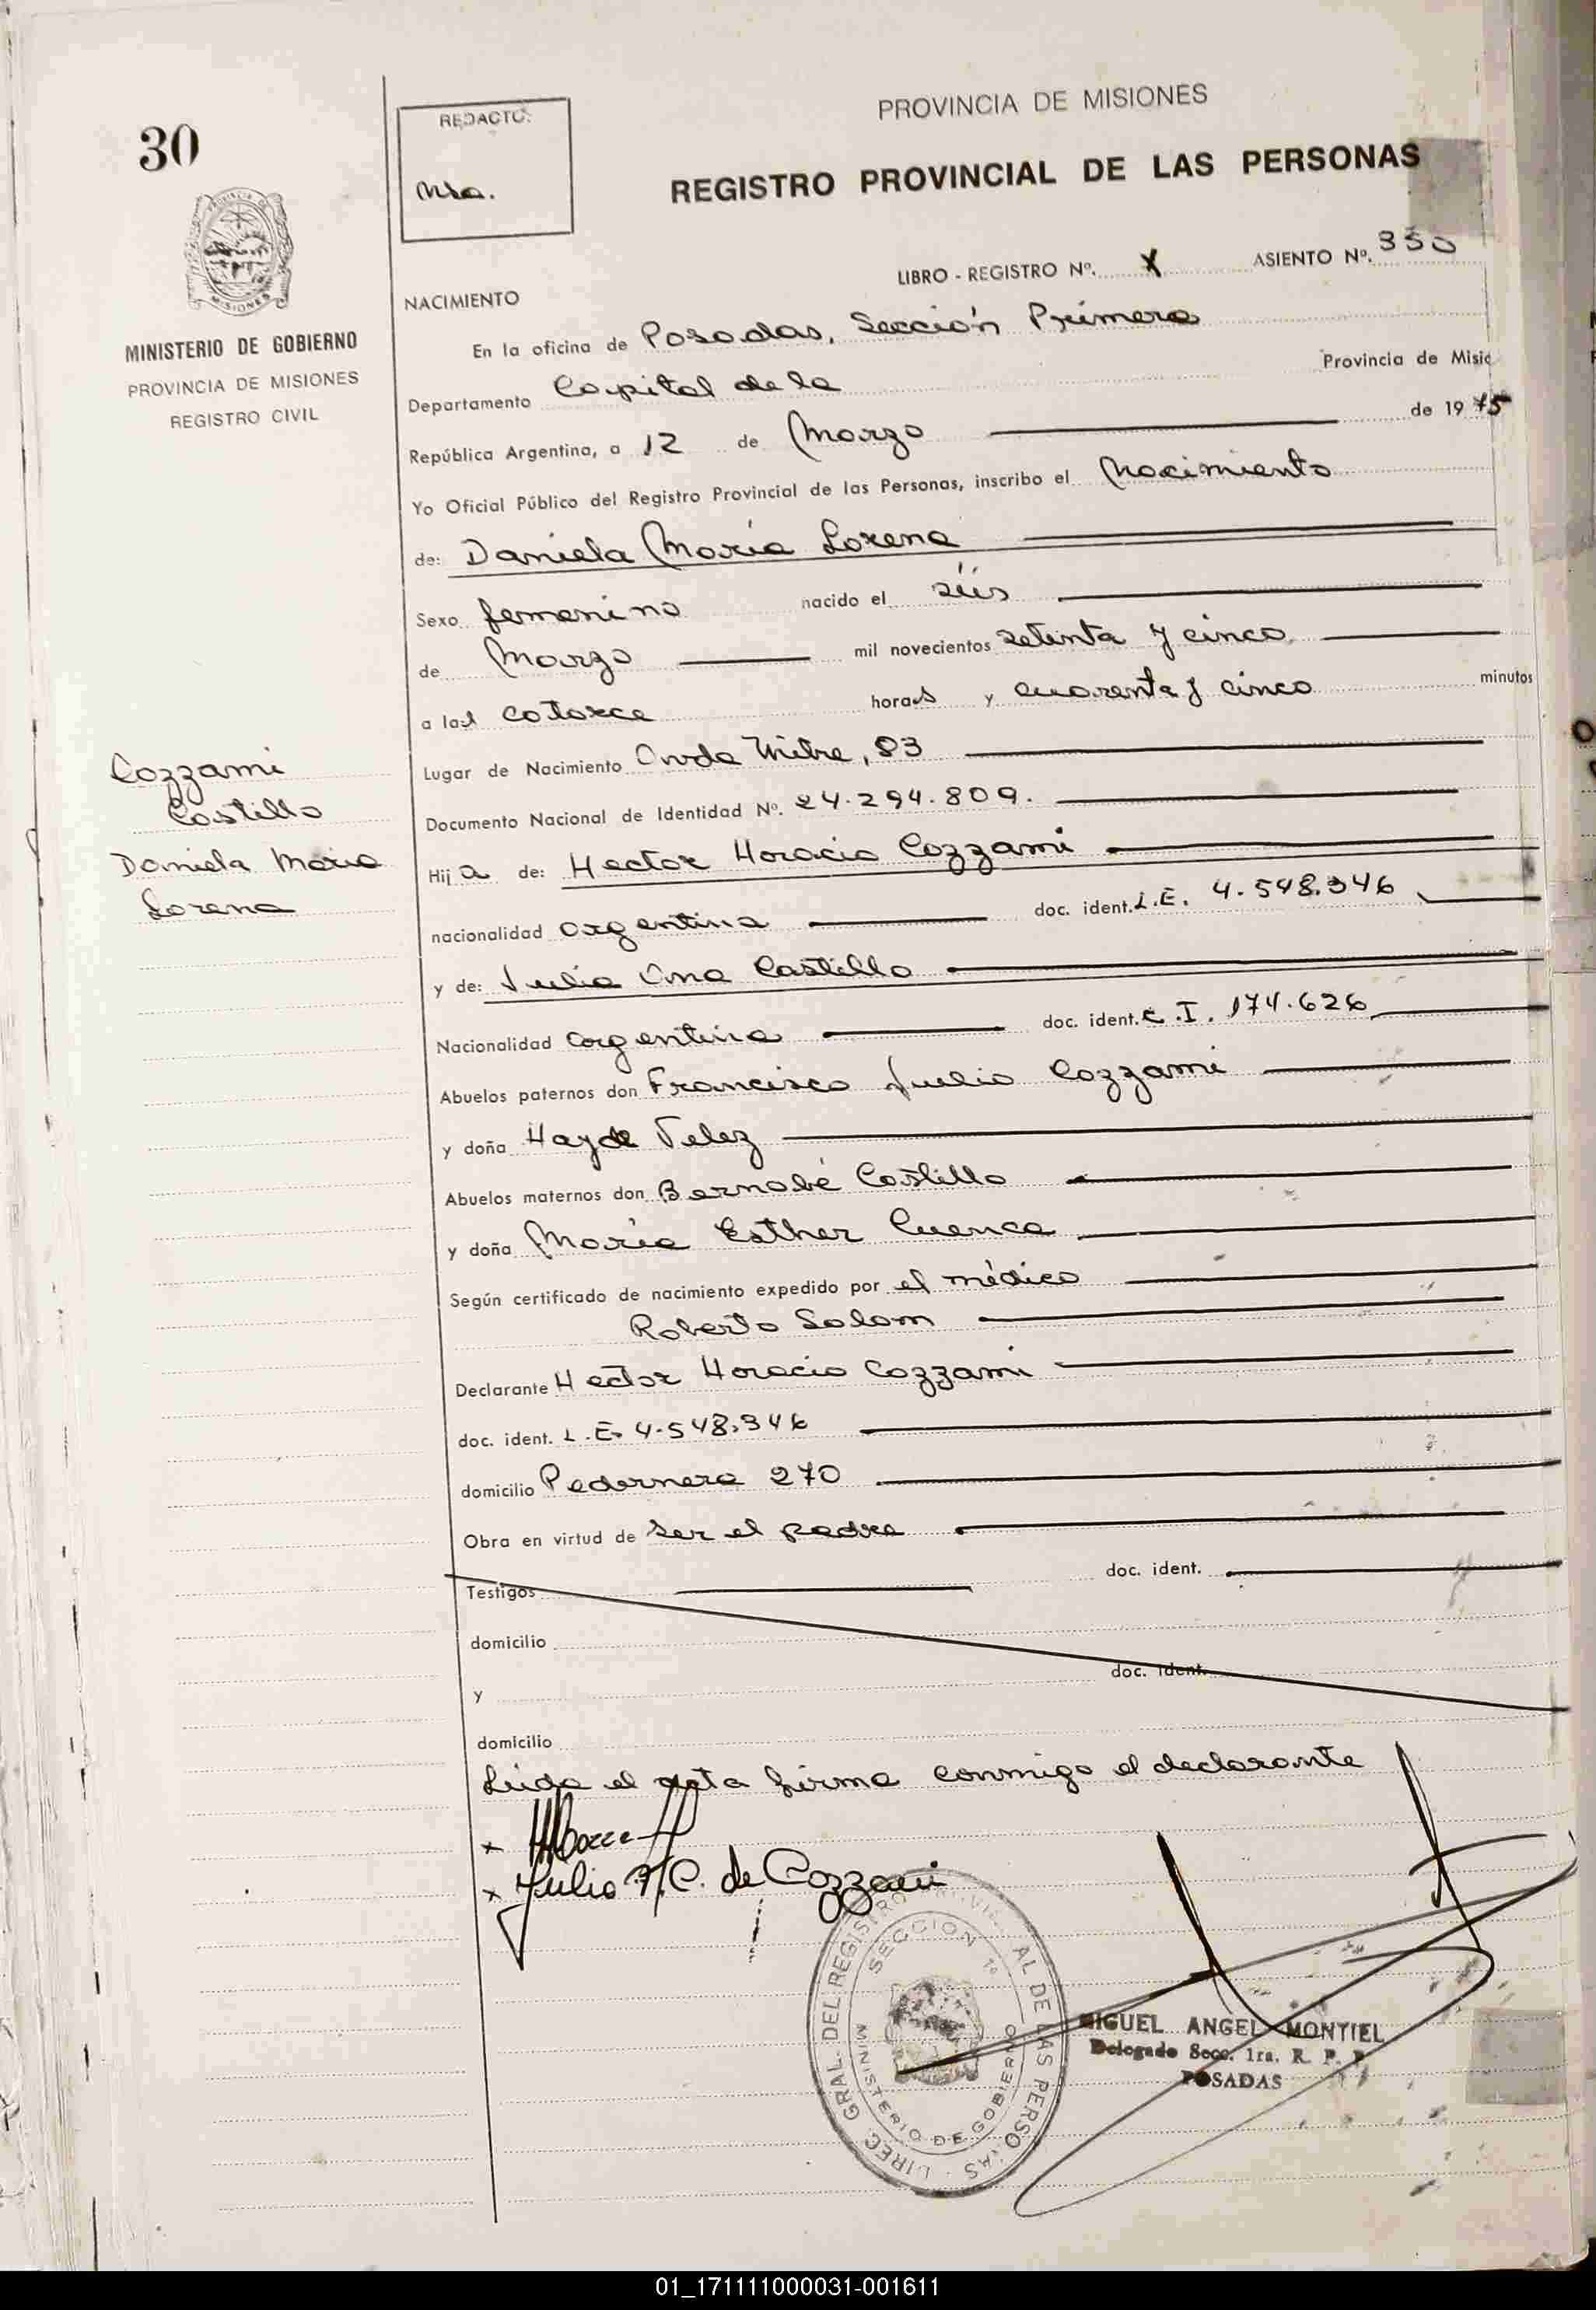 30
REDACTO:
PROVINCIA DE MISIONES
REGISTRO PROVINCIAL DE LAS PERSONAS
LIBRO - REGISTRO Nº. X ASIENTO Nº. 350
MINISTERIO DE GOBIERNO
PROVINCIA DE MISIONES
REGISTRO CIVIL
NACIMIENTO
En la oficina de Posadas, Sección Primera
Departamento Capital de la Provincia de Misic
República Argentina, a 12 de Marzo de 1975
Yo Oficial Público del Registro Provincial de las Personas, inscribo el Nacimiento
de: Daniela María Lorena
Sexo femenino nacido el séis
de Marzo mil novecientos setenta y cinco
a las catorce horas y cuarenta y cinco minutos
Lugar de Nacimiento Avda Mitre, 83
Documento Nacional de Identidad Nº. 24.294.809.
Hija de: Hector Horacio Cozzami
nacionalidad argentina doc. ident. L.E. 4.548.346
y de: Julia Ana Castillo
Nacionalidad argentina doc. ident. C.I. 174.626
Abuelos paternos don Francisco Julio Cozzami
y doña Hayde Velez
Abuelos maternos don Bernabé Castillo
y doña María Esther Cuenca
Según certificado de nacimiento expedido por el médico
Roberto Salom
Declarante Hector Horacio Cozzami
doc. ident. L.E. 4.548.346
domicilio Pedernera 270
Obra en virtud de ser el padre
Testigos doc. ident.
domicilio
y doc. ident.
domicilio
Leída el acta firma conmigo el declarante
Julia A. C. de Cozzami
Cozzami
Castillo
Daniela María
Lorena
DIREC. GRAL. DEL REGISTRO PROVINCIAL DE LAS PERSONAS
SECCION 1º
MINISTERIO DE GOBIERNO
MIGUEL ANGEL MONTIEL
Delegado Secc. 1ra. R. P. P.
POSADAS
01_171111000031-001611